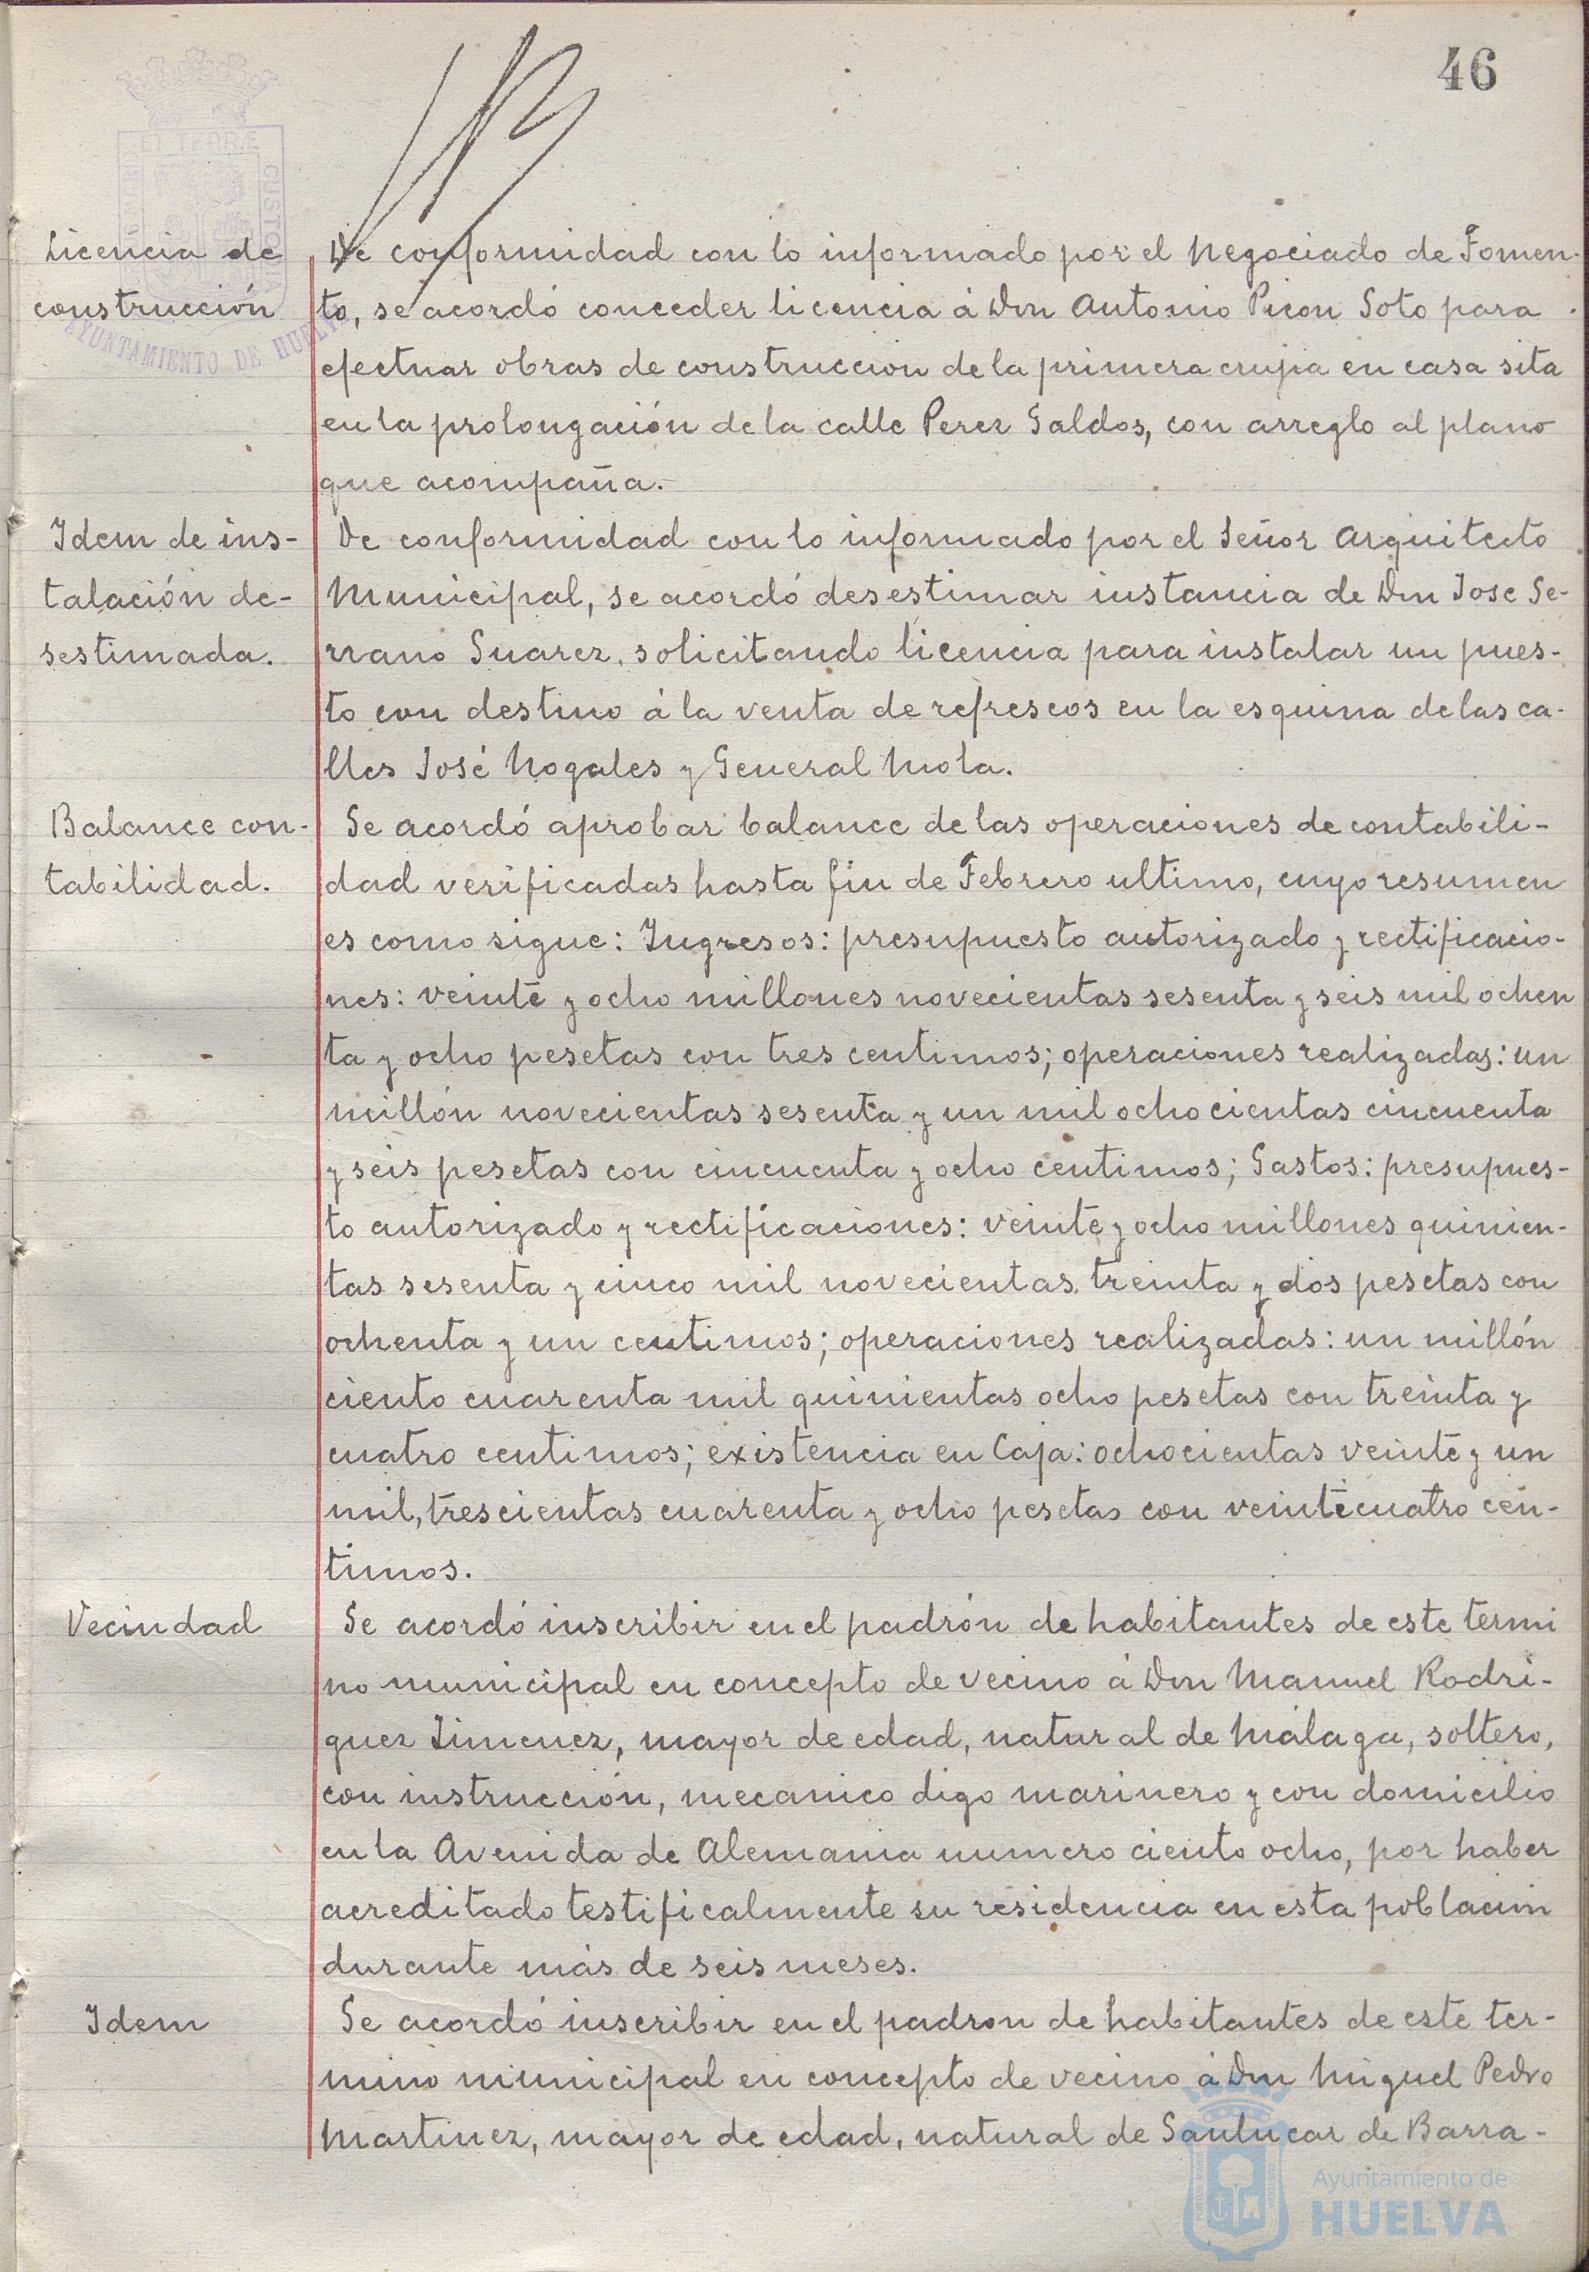 46
Licencia de
construcción
De conformidad con lo informado por el Negociado de Fomen-
to, se acordó conceder licencia á Don Antonio Picon Soto para
efectuar obras de construccion de la primera crujia en casa sita
en la prolongación de la calle Perez Galdos, con arreglo al plano
que acompaña.-
Idem de ins-
talación de-
sestimada.
De conformidad con lo informado por el Señor Arquitecto
Municipal, se acordó desestimar instancia de Don Jose Se-
rrano Suarez, solicitando licencia para instalar un pues-
to con destino á la venta de refrescos en la esquina de las ca-
lles José Nogales y General Mola.
Balance con-
tabilidad.
Se acordó aprobar balance de las operaciones de contabili-
dad verificadas hasta fin de Febrero ultimo, cuyo resumen
es como sigue: Ingresos: presupuesto autorizado y rectificacio-
nes: veinte y ocho millones novecientas sesenta y seis mil ochen
ta y ocho pesetas con tres centimos; operaciones realizadas: un
millón novecientas sesenta y un mil ochocientas cincuenta
y seis pesetas con cincuenta y ocho centimos; Gastos: presupues-
to autorizado y rectificaciones: veinte y ocho millones quinien-
tas sesenta y cinco mil novecientas treinta y dos pesetas con
ochenta y un centimos; operaciones realizadas: un millón
ciento cuarenta mil quinientas ocho pesetas con treinta y
cuatro centimos; existencia en Caja: ochocientas veinte y un
mil, trescientas cuarenta y ocho pesetas con veinticuatro cen-
timos.
Vecindad
Se acordó inscribir en el padrón de habitantes de este termi
no municipal en concepto de vecino á Don Manuel Rodri-
guez Jimenez, mayor de edad, natural de Málaga, soltero,
con instrucción, mecanico digo marinero y con domicilio
en la Avenida de Alemania numero ciento ocho, por haber
acreditado testificalmente su residencia en esta poblacion
durante más de seis meses.
Idem
Se acordó inscribir en el padron de habitantes de este ter-
mino municipal en concepto de vecino á Don Miguel Pedro
Martinez, mayor de edad, natural de Sanlucar de Barra-
ET TERRÆ
CUSTODIA
AYUNTAMIENTO DE HUELVA
Ayuntamiento de
HUELVA